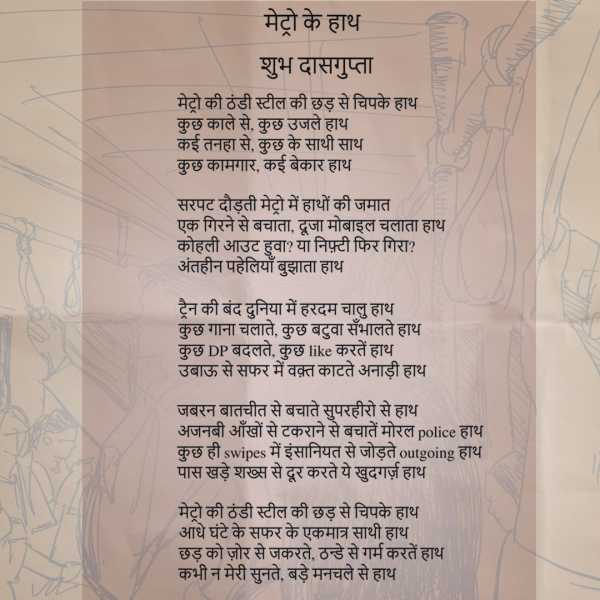 मेट्रो के हाथ
शुभ दासगुप्ता
मेट्रो की ठंडी स्टील की छड़ से चिपके हाथ
कुछ काले से, कुछ उजले हाथ
कई तनहा से, कुछ के साथी साथ
कुछ कामगार, कई बेकार हाथ
सरपट दौड़ती मेट्रो में हाथों की जमात
एक गिरने से बचाता, दूजा मोबाइल चलाता हाथ
कोहली आउट हुवा? या निफ़्टी फिर गिरा?
अंतहीन पहेलियाँ बुझाता हाथ
ट्रैन की बंद दुनिया में हरदम चालु हाथ
कुछ गाना चलाते, कुछ बटुवा सँभालते हाथ
कुछ DP बदलते, कुछ like करतें हाथ
उबाऊ से सफर में वक़्त काटते अनाड़ी हाथ
जबरन बातचीत से बचाते सुपरहीरो से हाथ
अजनबी आँखों से टकराने से बचातें मोरल police हाथ
कुछ ही swipes में इंसानियत से जोड़ते outgoing हाथ
पास खड़े शख्स से दूर करते ये खुदगर्ज़ हाथ
मेट्रो की ठंडी स्टील की छड़ से चिपके हाथ
आधे घंटे के सफर के एकमात्र साथी हाथ
छड़ को ज़ोर से जकरते, ठन्डे से गर्म करतें हाथ
कभी न मेरी सुनते, बड़े मनचले से हाथ